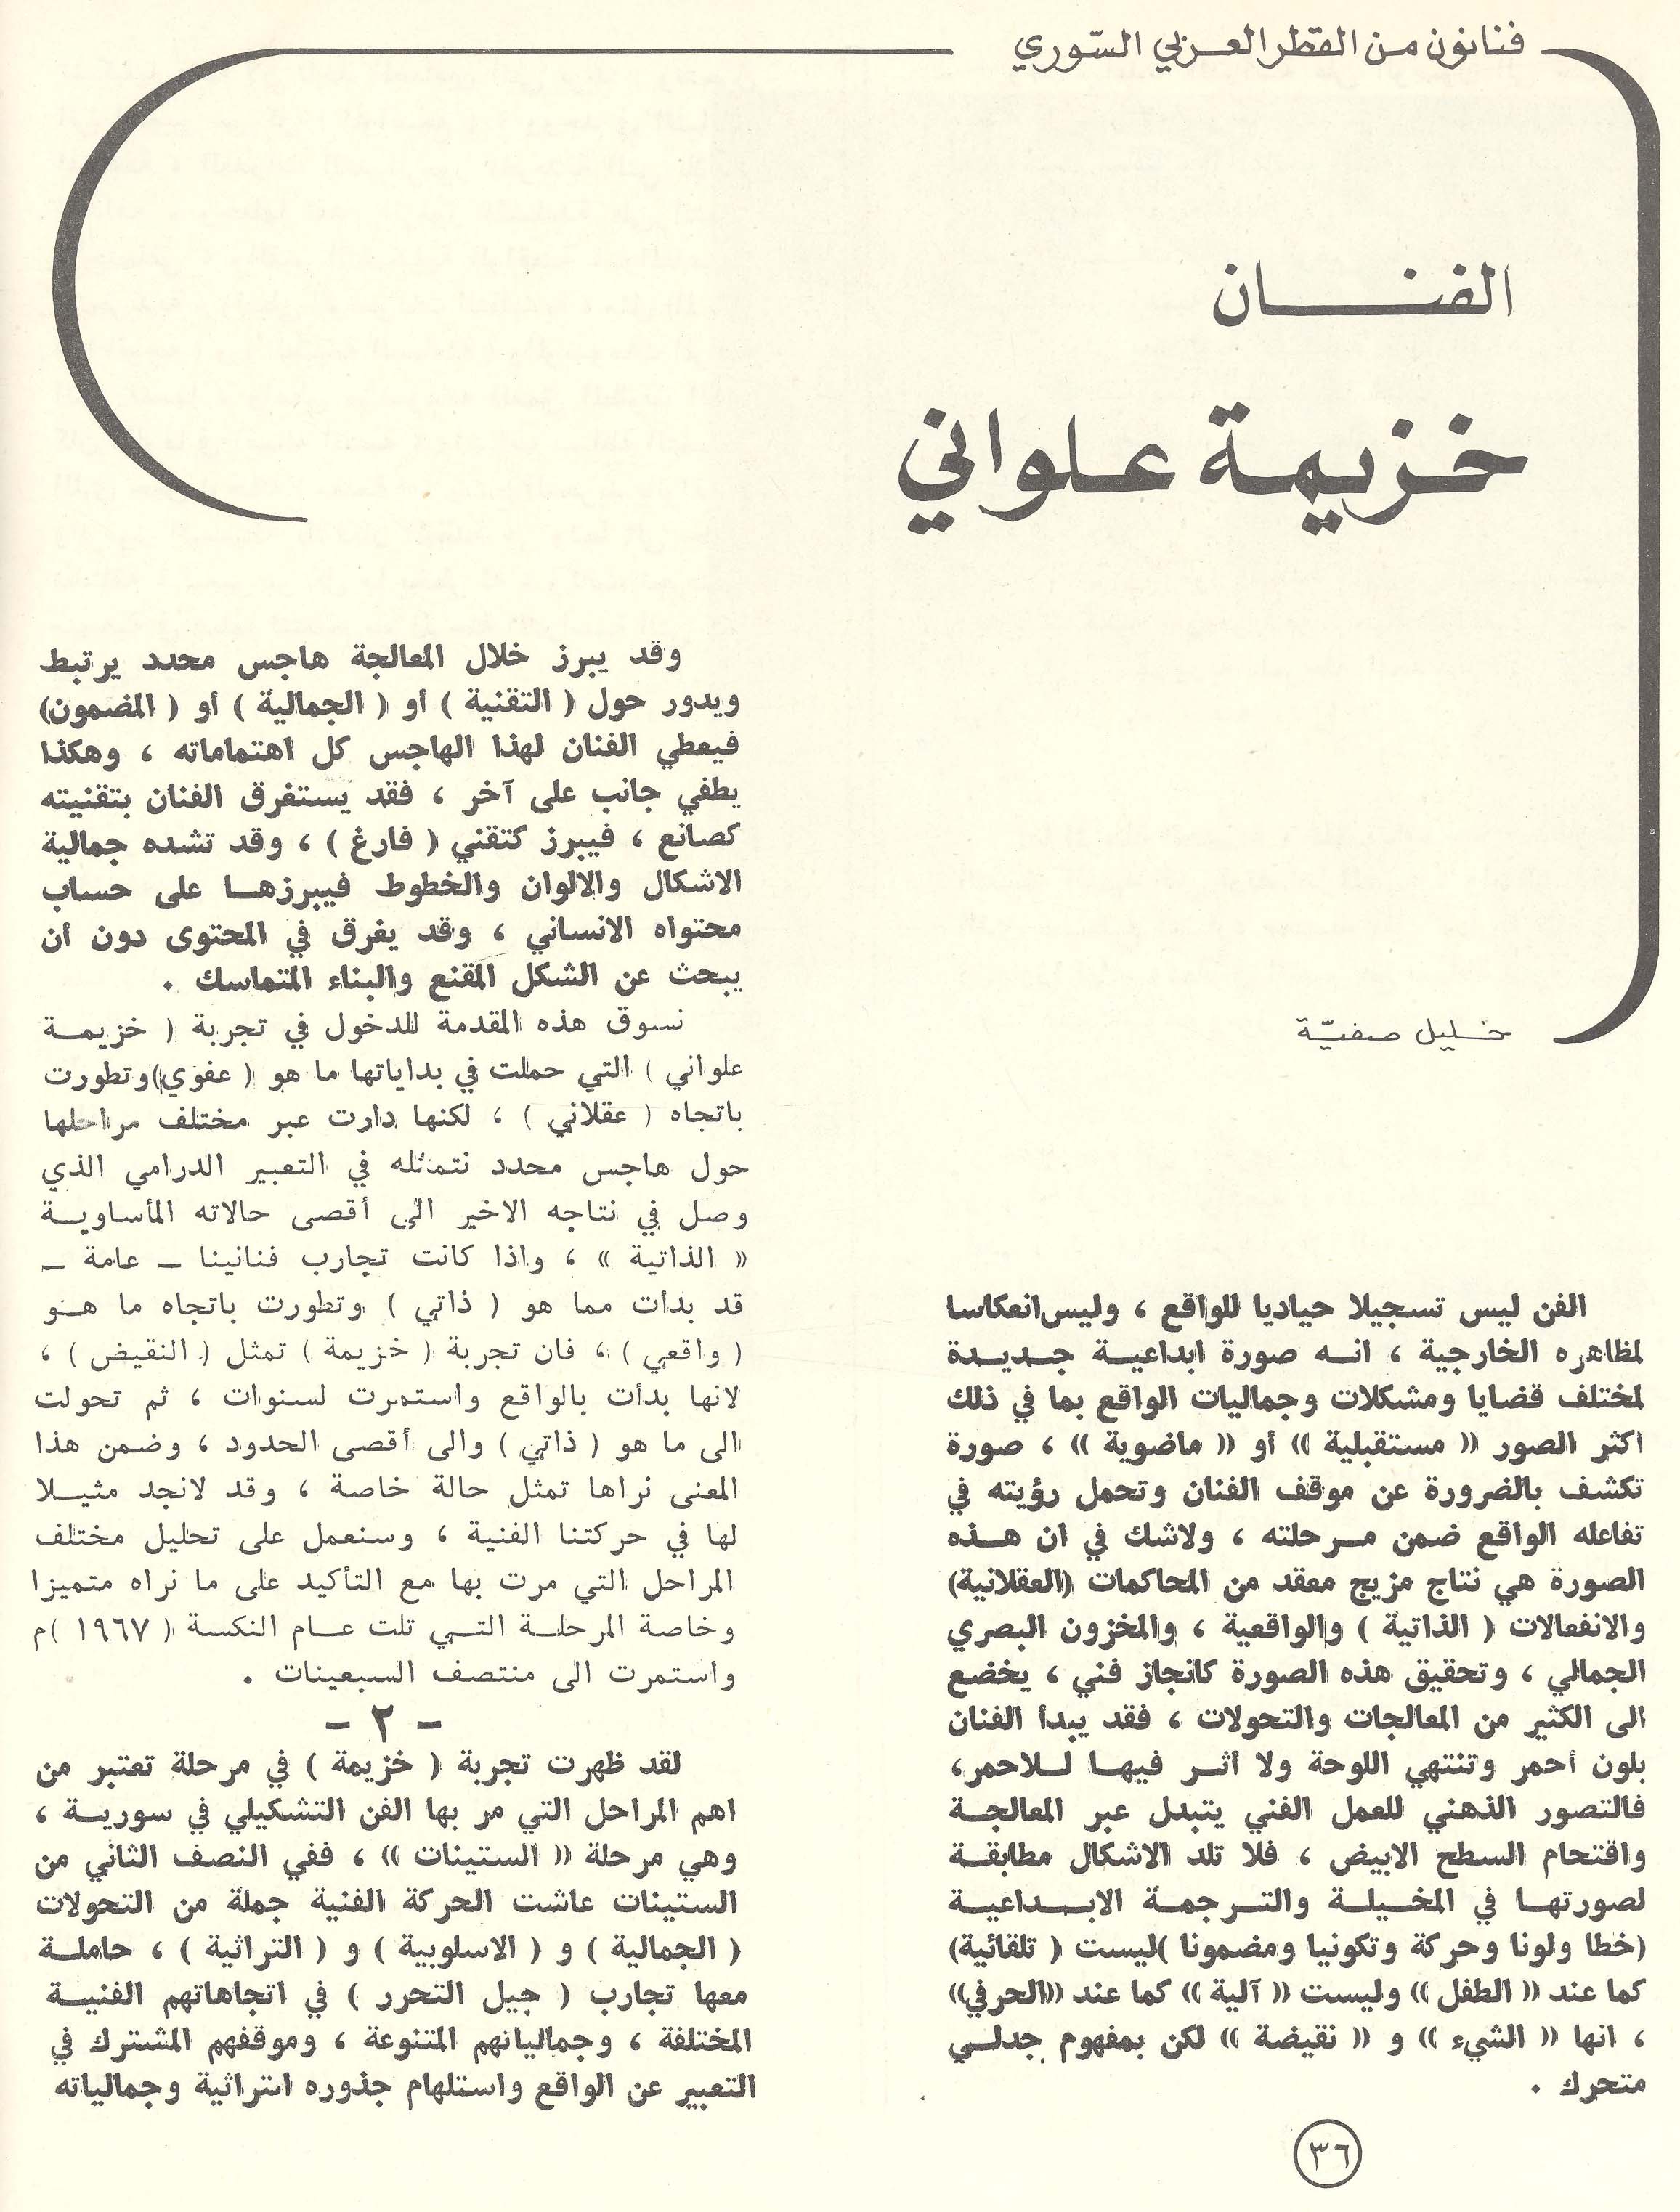 فنانون من القطر العربي السّوري
الفنــان
خزيمة علواني
خليل صفيّة
الفن ليس تسجيلا حياديا للواقع ، وليس انعكاسا
لمظاهره الخارجية ، انـه صورة ابداعيـة جـديـدة
لمختلف قضايا ومشكلات وجماليات الواقع بما في ذلك
اكثر الصور « مستقبلية » أو « ماضوية » ، صورة
تكشف بالضرورة عن موقف الفنان وتحمل رؤيته في
تفاعله الواقع ضمن مـرحلته ، ولاشك في ان هـذه
الصورة هي نتاج مزيج معقد من المحاكمات (العقلانية)
والانفعالات ( الذاتية ) والواقعية ، والمخزون البصري
الجمالي ، وتحقيق هذه الصورة كانجاز فني ، يخضع
الى الكثير من المعالجات والتحولات ، فقد يبدأ الفنان
بلون أحمر وتنتهي اللوحة ولا أثـر فيهـا لـلاحمر،
فالتصور الذهني للعمل الفني يتبدل عبر المعالجـة
واقتحام السطح الابيض ، فلا تلد الاشكال مطابقـة
لصورتهـا في المخيلـة والتـرجمـة الابـداعيـة
(خطا ولونا وحركة وتكونيا ومضمونا )ليست ( تلقائية)
كما عند « الطفل » وليست « آلية » كما عند «الحرفي»
، انها « الشيء » و « نقيضة » لكن بمفهوم جدلـي
متحرك .
وقد يبرز خلال المعالجة هاجس محدد يرتبط
ويدور حول ( التقنية ) أو ( الجمالية ) أو ( المضمون)
فيعطي الفنان لهذا الهاجس كل اهتماماته ، وهكذا
يطفي جانب على آخر ، فقد يستغرق الفنان بتقنيته
كصانع ، فيبرز كتقني ( فارغ ) ، وقد تشده جمالية
الاشكال والالوان والخطوط فيبرزهـا على حساب
محتواه الانساني ، وقد يغرق في المحتوى دون أن
يبحث عن الشكل المقنع والبناء المتماسك .
نسوق هذه المقدمة للدخول في تجربة ( خزيمـة
علواني ) التي حملت في بداياتها ما هو ( عفوي)وتطورت
باتجاه ( عقلاني ) ، لكنها دارت عبر مختلف مراحلها
حول هاجس محدد نتمثله في التعبير الدرامي الذي
وصل في نتاجه الاخير الى أقصى حالاته المأساويـة
« الذاتية » ، واذا كانت تجارب فنانينا - عامة -
قد بدأت مما هو ( ذاتي ) وتطورت باتجاه ما هـو
( واقعي ) ، فان تجربة ( خزيمة ) تمثل ( النقيض ) ،
لانها بدأت بالواقع واستمرت لسنوات ، ثم تحولت
الى ما هو ( ذاتي ) والى أقصى الحدود ، وضمن هذا
المعنى نراها تمثل حالة خاصة ، وقد لانجد مثيـلا
لها في حركتنا الفنية ، وسنعمل على تحليل مختلف
المراحل التي مرت بها مع التأكيد على ما نراه متميزا
وخاصة المرحلـة التـي تلت عـام النكسة ( ١٩٦٧ )م
واستمرت الى منتصف السبعينات .
- ٢ -
لقد ظهرت تجربة ( خزيمة ) في مرحلة تعتبر من
اهم المراحل التي مر بها الفن التشكيلي في سوريـة ،
وهي مرحلة « الستينات » ، ففي النصف الثاني من
الستينات عاشت الحركة الفنية جملة من التحولات
( الجمالية ) و ( الاسلوبية ) و ( التراثية ) ، حاملـة
معها تجارب ( جيل التحرر ) في اتجاهاتهم الفنيـة
المختلفة ، وجمالياتهم المتنوعة ، وموقفهم المشترك في
التعبير عن الواقع واستلهام جذوره التراثية وجمالياته
٣٦